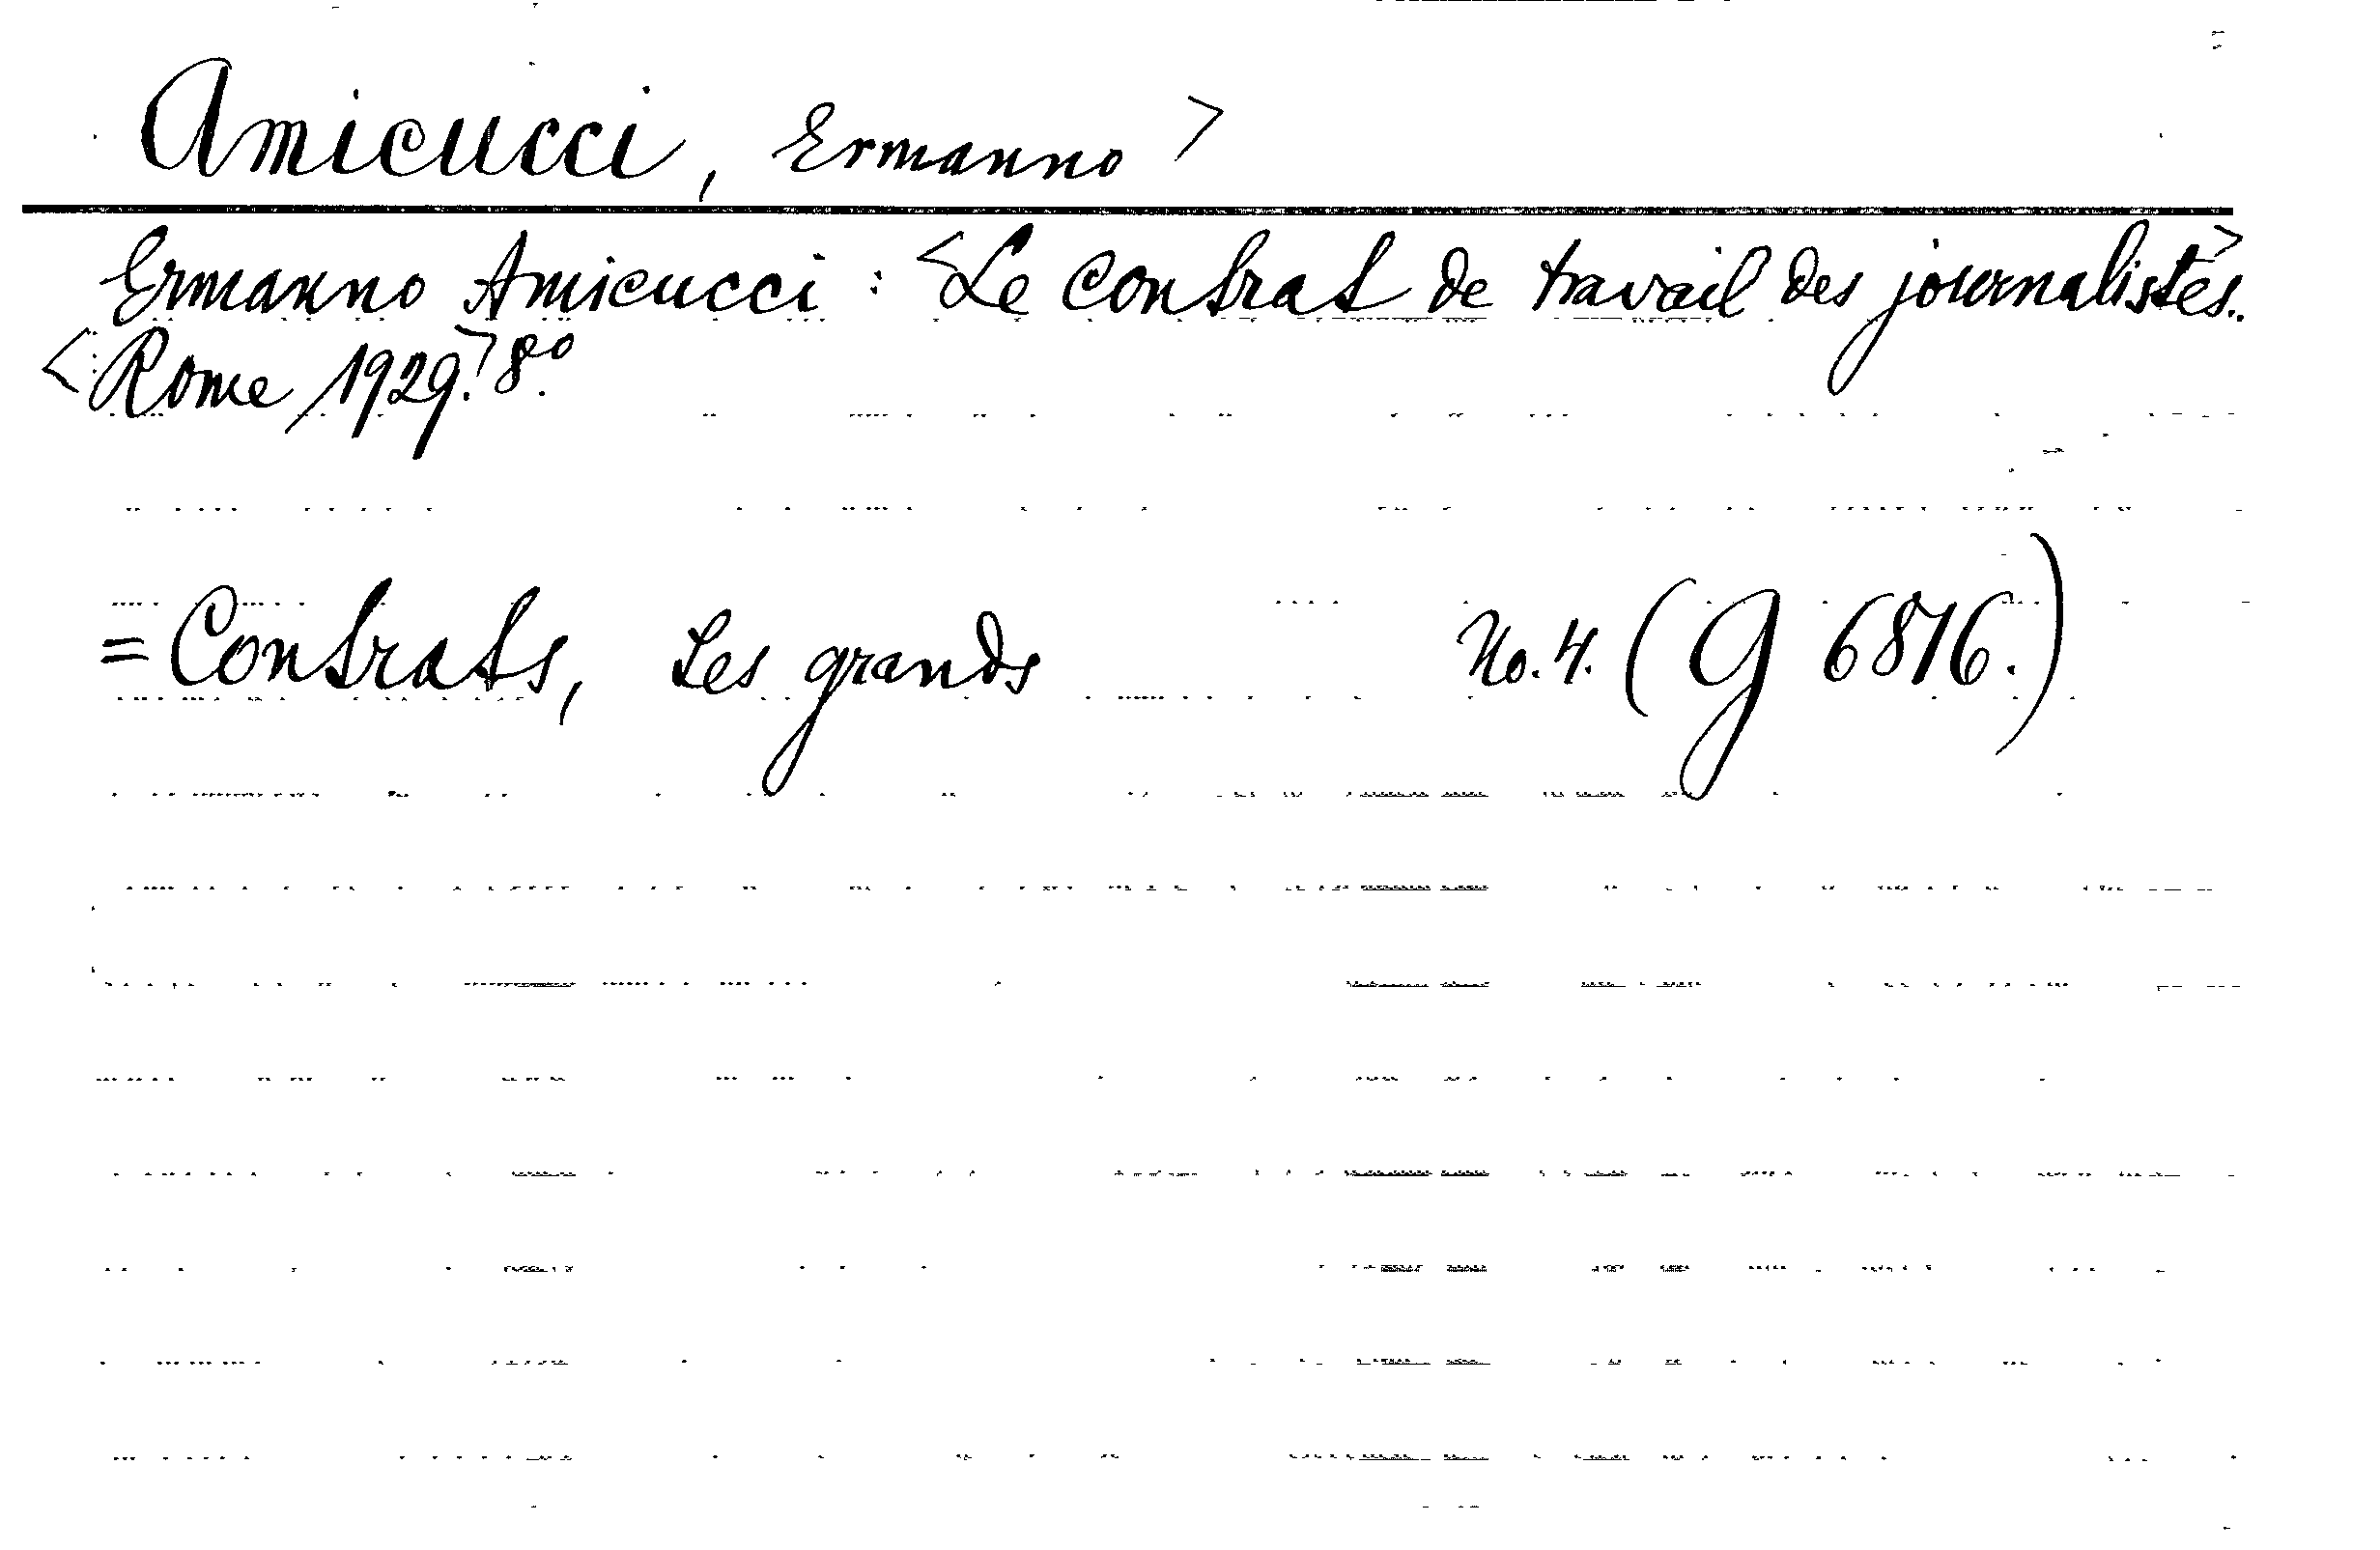 Amicucci, Ermanno >
Ermanno Amicucci : <Le contrat de travail des journalistes.>
<Rome 1929.> 8.º
= Contrats, Les grands No. 4. (G 6876.)